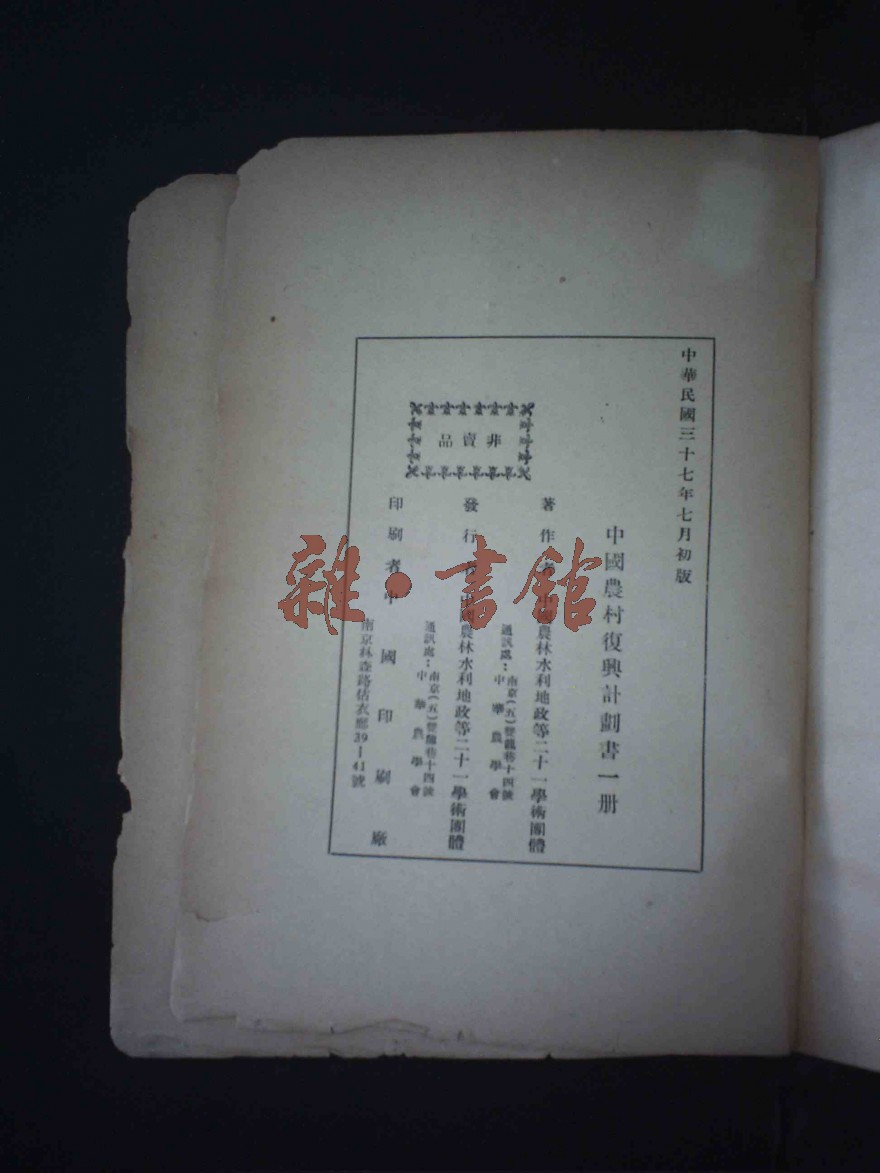 中華民國三十七年七月初版
中國農村復興計劃書一册
非賣品
著作者 中國農林水利地政等二十一學術團體
通訊處：南京（五）雙龍巷十四號
中華農學會
發行者 中國農林水利地政等二十一學術團體
通訊處：南京（五）雙龍巷十四號
中華農學會
印刷者 中國印刷廠
南京林森路估衣廊39—41號
雜·書館